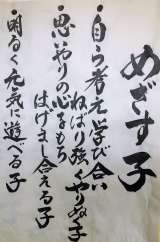 めざす子
・自ら考え学び合い
ねばり強くやりぬく子
・思いやりの心をもち
はげまし合える子
・明るく元気に遊べる子